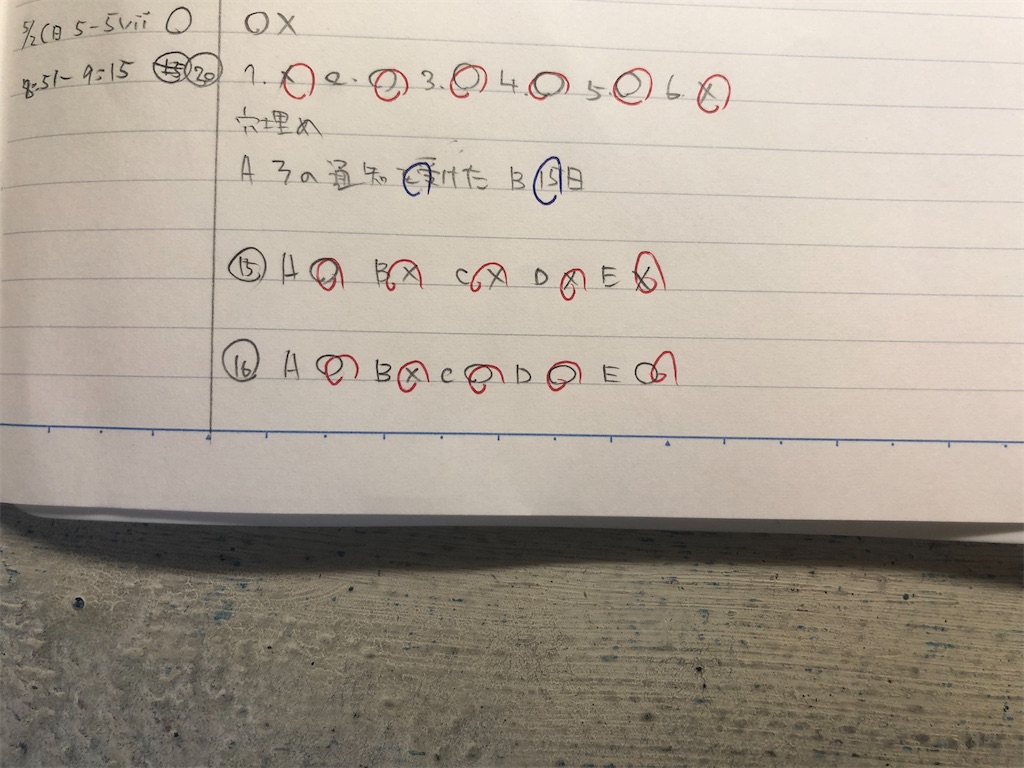 5/2(日 5-5vii ○ ○×
8:51-9:15 20 1.× 2.○ 3.○ 4.○ 5.○ 6.×
穴埋め
A その通知を受けた B 15日
⑮ A ○ B × C × D × E ×
⑯ A ○ B × C ○ D ○ E ○